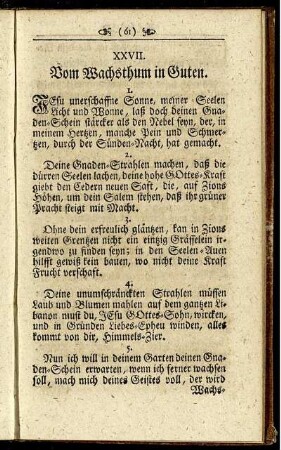 (61)
XXVII.
Vom Wachsthum in Guten.
1.
JEsu unerschaffne Sonne, meiner Seelen
Licht und Wonne, laß doch deinen Gna-
den-Schein stärcker als den Nebel seyn, der, in
meinem Hertzen, manche Pein und Schmer-
tzen, durch der Sünden-Nacht, hat gemacht.
2.
Deine Gnaden-Strahlen machen, daß die
dürren Seelen lachen, deine hohe GOttes-Kraft
giebt den Cedern neuen Saft, die, auf Zions
Höhen, um dein Salem stehen, daß ihr grüner
Pracht steigt mit Macht.
3.
Ohne dein erfreulich gläntzen, kan in Zions
weiten Grentzen nicht ein eintzig Gräsfelein ir-
gendwo zu finden seyn; in den Seelen-Auen
hilfft gewiß kein bauen, wo nicht deine Kraft
Frucht verschaft.
4.
Deine unumschränckten Strahlen müssen
Laub und Blumen mahlen auf dem gantzen Li-
banon must du, JEsu GOttes-Sohn, wircken,
und in Gründen Liebes-Epheu winden, alles
kommt von dir, Himmels-Zier.
5.
Nun ich will in deinem Garten deinen Gna-
den-Schein erwarten, wenn ich ferner wachsen
soll, mach mich deines Geistes voll, der wird
Wachs-